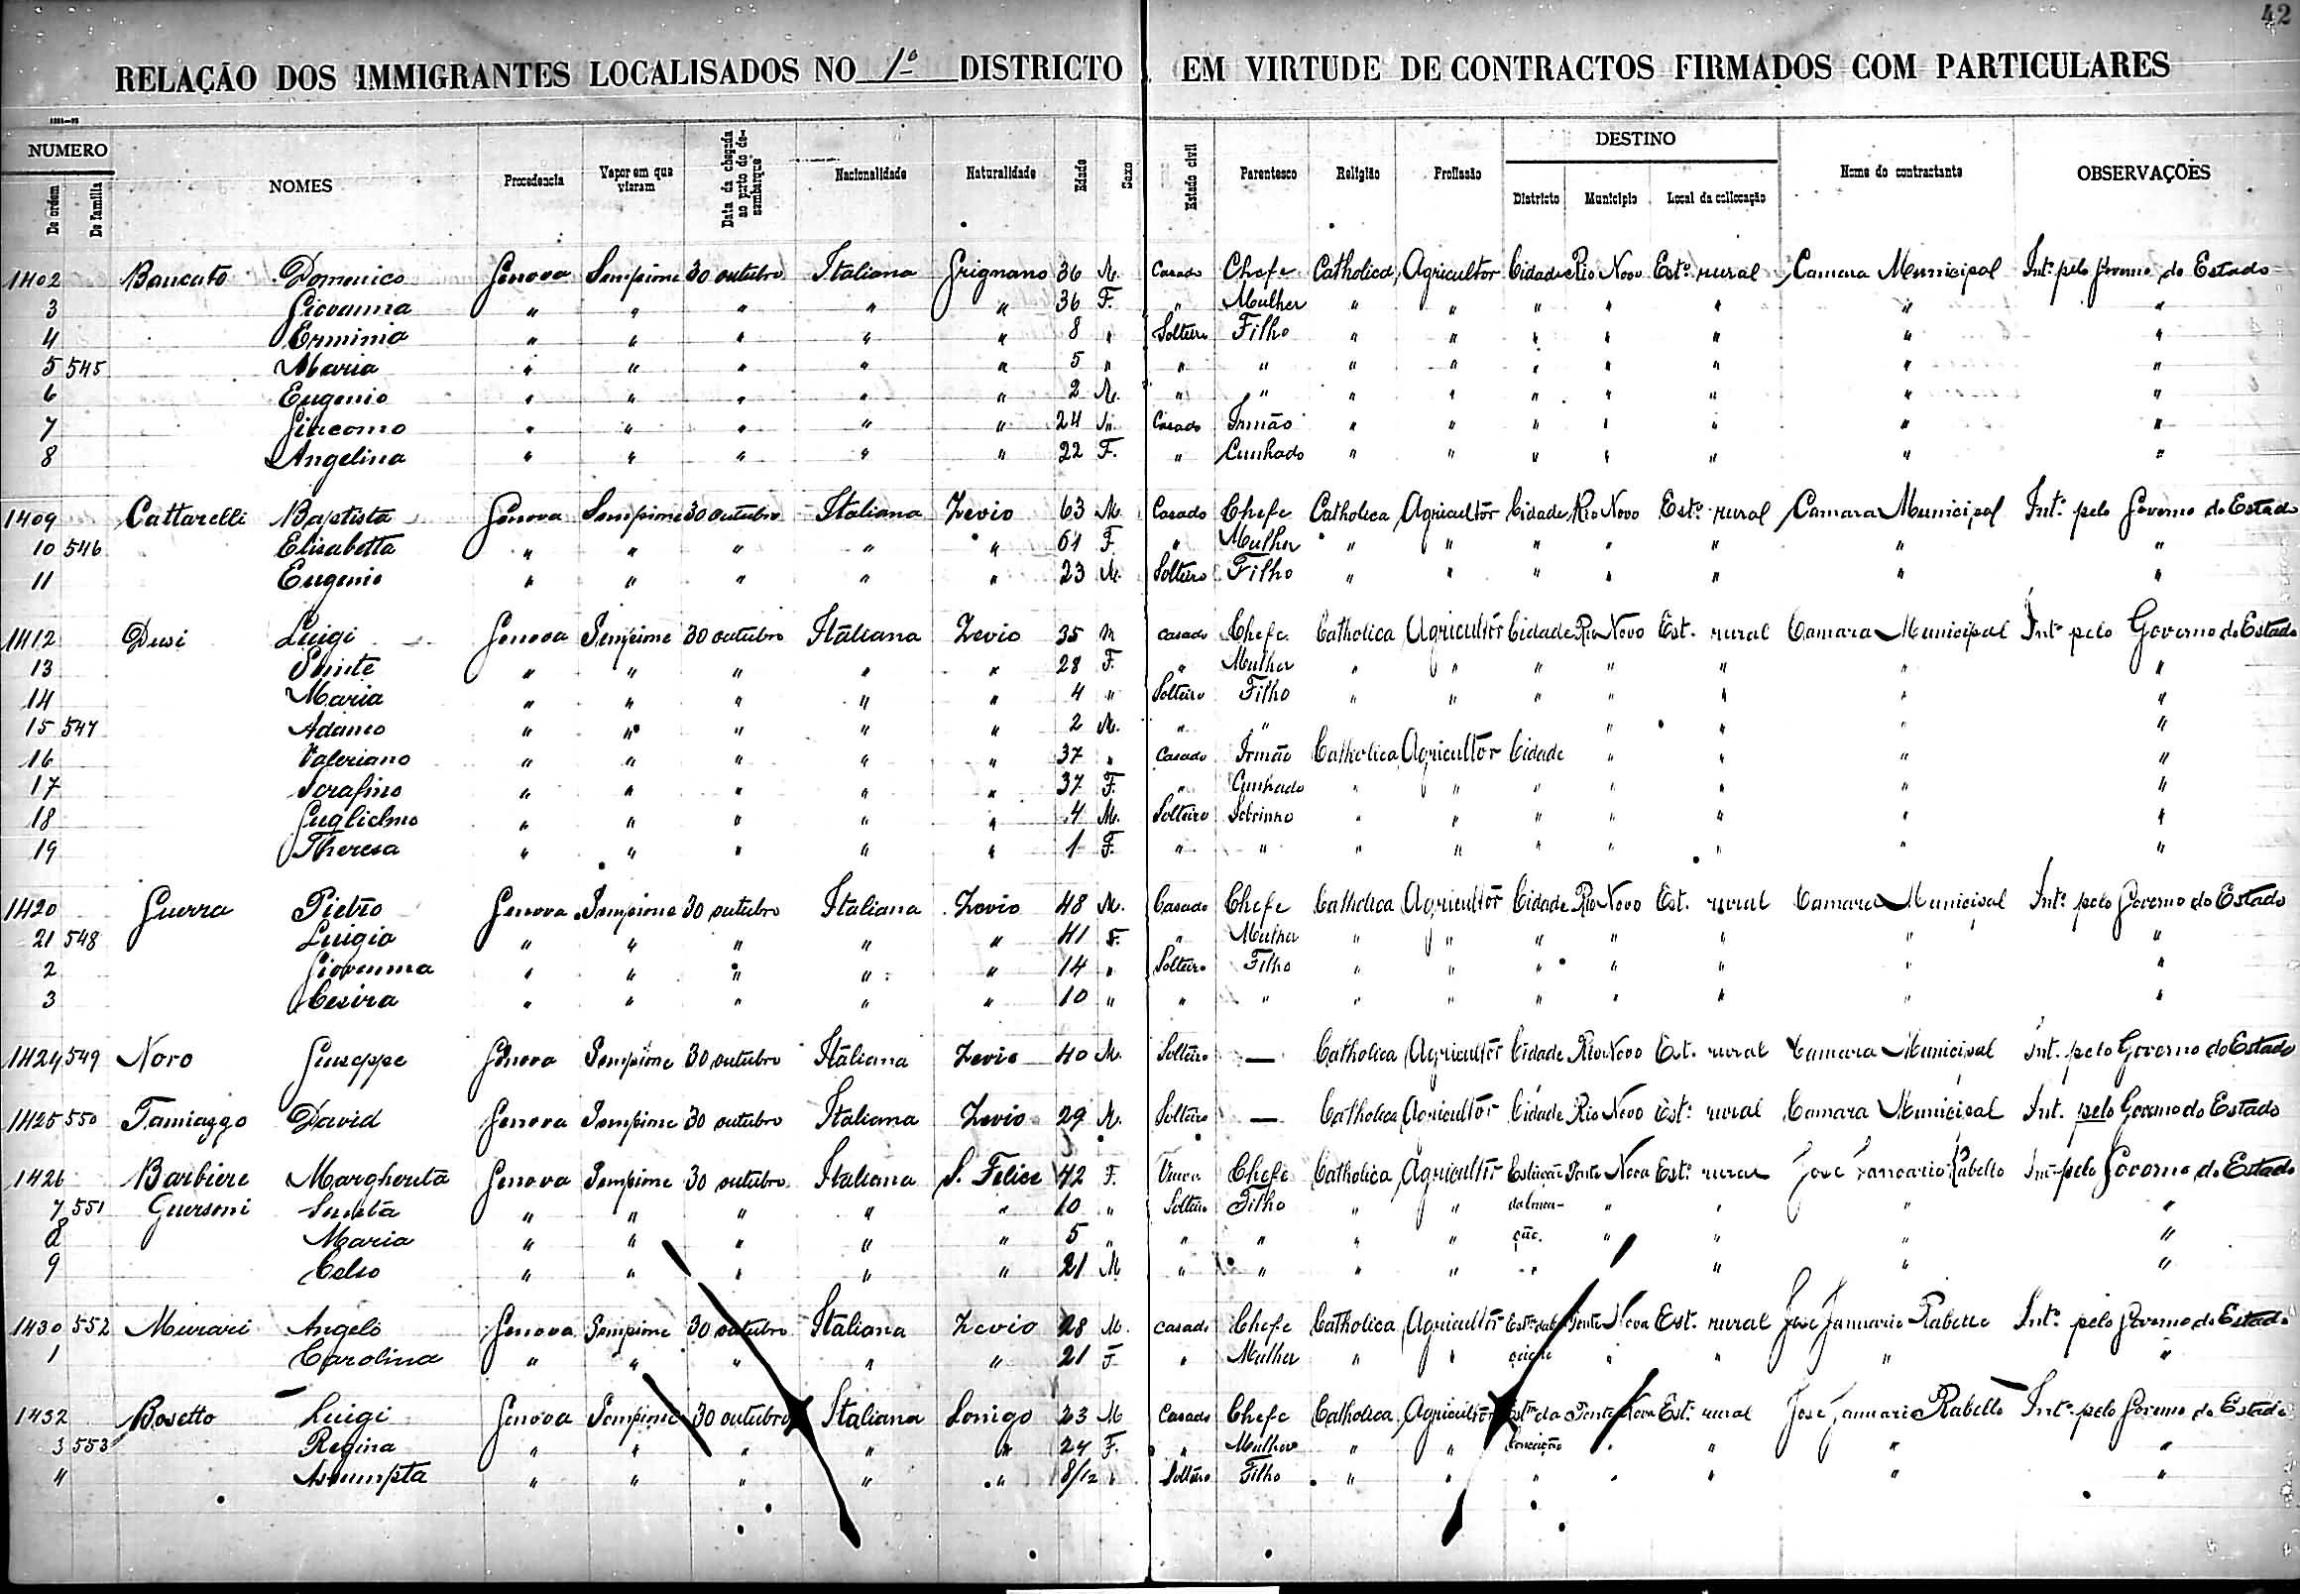 42
RELAÇÃO DOS IMMIGRANTES LOCALISADOS NO 1º DISTRICTO EM VIRTUDE DE CONTRACTOS FIRMADOS COM PARTICULARES
NUMERO DESTINO
De ordem De familia NOMES Procedencia Vapor em que vieram Data da chegada ao porto do desembarque Nacionalidade Naturalidade Edade Sexo Estado civil Parentesco Religião Profissão Districto Municipio Local da collocação Nome do contractante OBSERVAÇÕES
1402 Baucato Domenico Genova Sempione 30 outubro Italiana Grignano 36 M. Casado Chefe Catholica Agricultor Cidade Rio Novo Estº rural Camara Municipal Intº pelo Governo do Estado
3 Giovanna " " " " " 36 F. " Mulher " " " " " " "
4 Erminia " " " " " 8 " Solteiro Filho " " " " " " "
5 545 Maria " " " " " 5 " " " " " " " " " "
6 Eugenio " " " " " 2 M. " " " " " " " " "
7 Giacomo " " " " " 24 " Casado Irmão " " " " " " "
8 Angelina " " " " " 22 F. " Cunhado " " " " " " "
1409 Cattarelli Baptista Genova Sempione 30 outubro Italiana Zevio 63 M Casado Chefe Catholica Agricultor Cidade Rio Novo Estº rural Camara Municipal Intº pelo Governo do Estado
10 546 Elisabetta " " " " " 61 F. " Mulher " " " " " " "
11 Eugenio " " " " " 23 M. Solteiro Filho " " " " " " "
1412 Dusi Luigi Genova Sempione 30 outubro Italiana Zevio 35 M casado Chefe Catholica Agricultor Cidade Rio Novo Est. rural Camara Municipal Intº pelo Governo do Estado
13 " " " " " 28 F. " Mulher " " " " " " "
14 Maria " " " " " 4 " Solteiro Filho " " " " " " "
15 547 Adamo " " " " " 2 M. " " " " " "
16 Valeriano " " " " " 37 " Casado Irmão Catholica Agricultor Cidade " " " "
17 Serafino " " " " " 37 F. " Cunhado " " " " " " "
18 Guglielmo " " " " " 4 M. Solteiro Sobrinho " " " " " " "
19 Theresa " " " " " 1 F. " " " " " " " " "
1420 Guerra Pietro Genova Sempione 30 outubro Italiana Zevio 48 M. Casado Chefe Catholica Agricultor Cidade Rio Novo Est. rural Camara Municipal Intº pelo Governo do Estado
21 548 Luigia " " " " " 41 F. " Mulher " " " " " " "
2 Giovanna " " " " " 14 " Solteiro Filho " " " " " " "
3 Cesira " " " " " 10 " " " " " " " " " "
1424 549 Noro Giuseppe Genova Sempione 30 outubro Italiana Zevio 40 M. Solteiro — Catholica Agricultor Cidade Rio Novo Est. rural Camara Municipal Int. pelo Governo do Estado
1425 550 Tamiazzo David Genova Sempione 30 outubro Italiana Zevio 29 M. Solteiro — Catholica Agricultor Cidade Rio Novo Estº rural Camara Municipal Int. pelo Governo do Estado
1426 Barbiere Margherita Genova Sempione 30 outubro Italiana S. Felice 42 F. Viuva Chefe Catholica Agricultor Estação Ponte Nova Estº rural José Januario Rabello Intº pelo Governo do Estado
7 551 Guersoni " " " " " 10 " Solteiro Filho " " " " " "
8 Maria " " " " " 5 " " " " " ção. " " " "
9 Celso " " " " " 21 M " " " " " " " "
1430 552 Murari Angelo Genova Sempione 30 outubro Italiana Zevio 28 M. casado Chefe Catholica Agricultor Ponte Nova Est. rural José Januario Rabello Intº pelo Governo do Estado
1 Carolina " " " " " 21 F " Mulher " " " " " "
1432 Bosetto Luigi Genova Sempione 30 outubro Italiana Lonigo 23 M Casado Chefe Catholica Agricultor Estº da Ponte Nova Est. rural José Januario Rabello Intº pelo Governo do Estado
3 553 Regina " " " " " 24 F. " Mulher " " Conceição " " " "
4 Assumpta " " " " " 8/12 " Solteiro Filho " " " " " " "